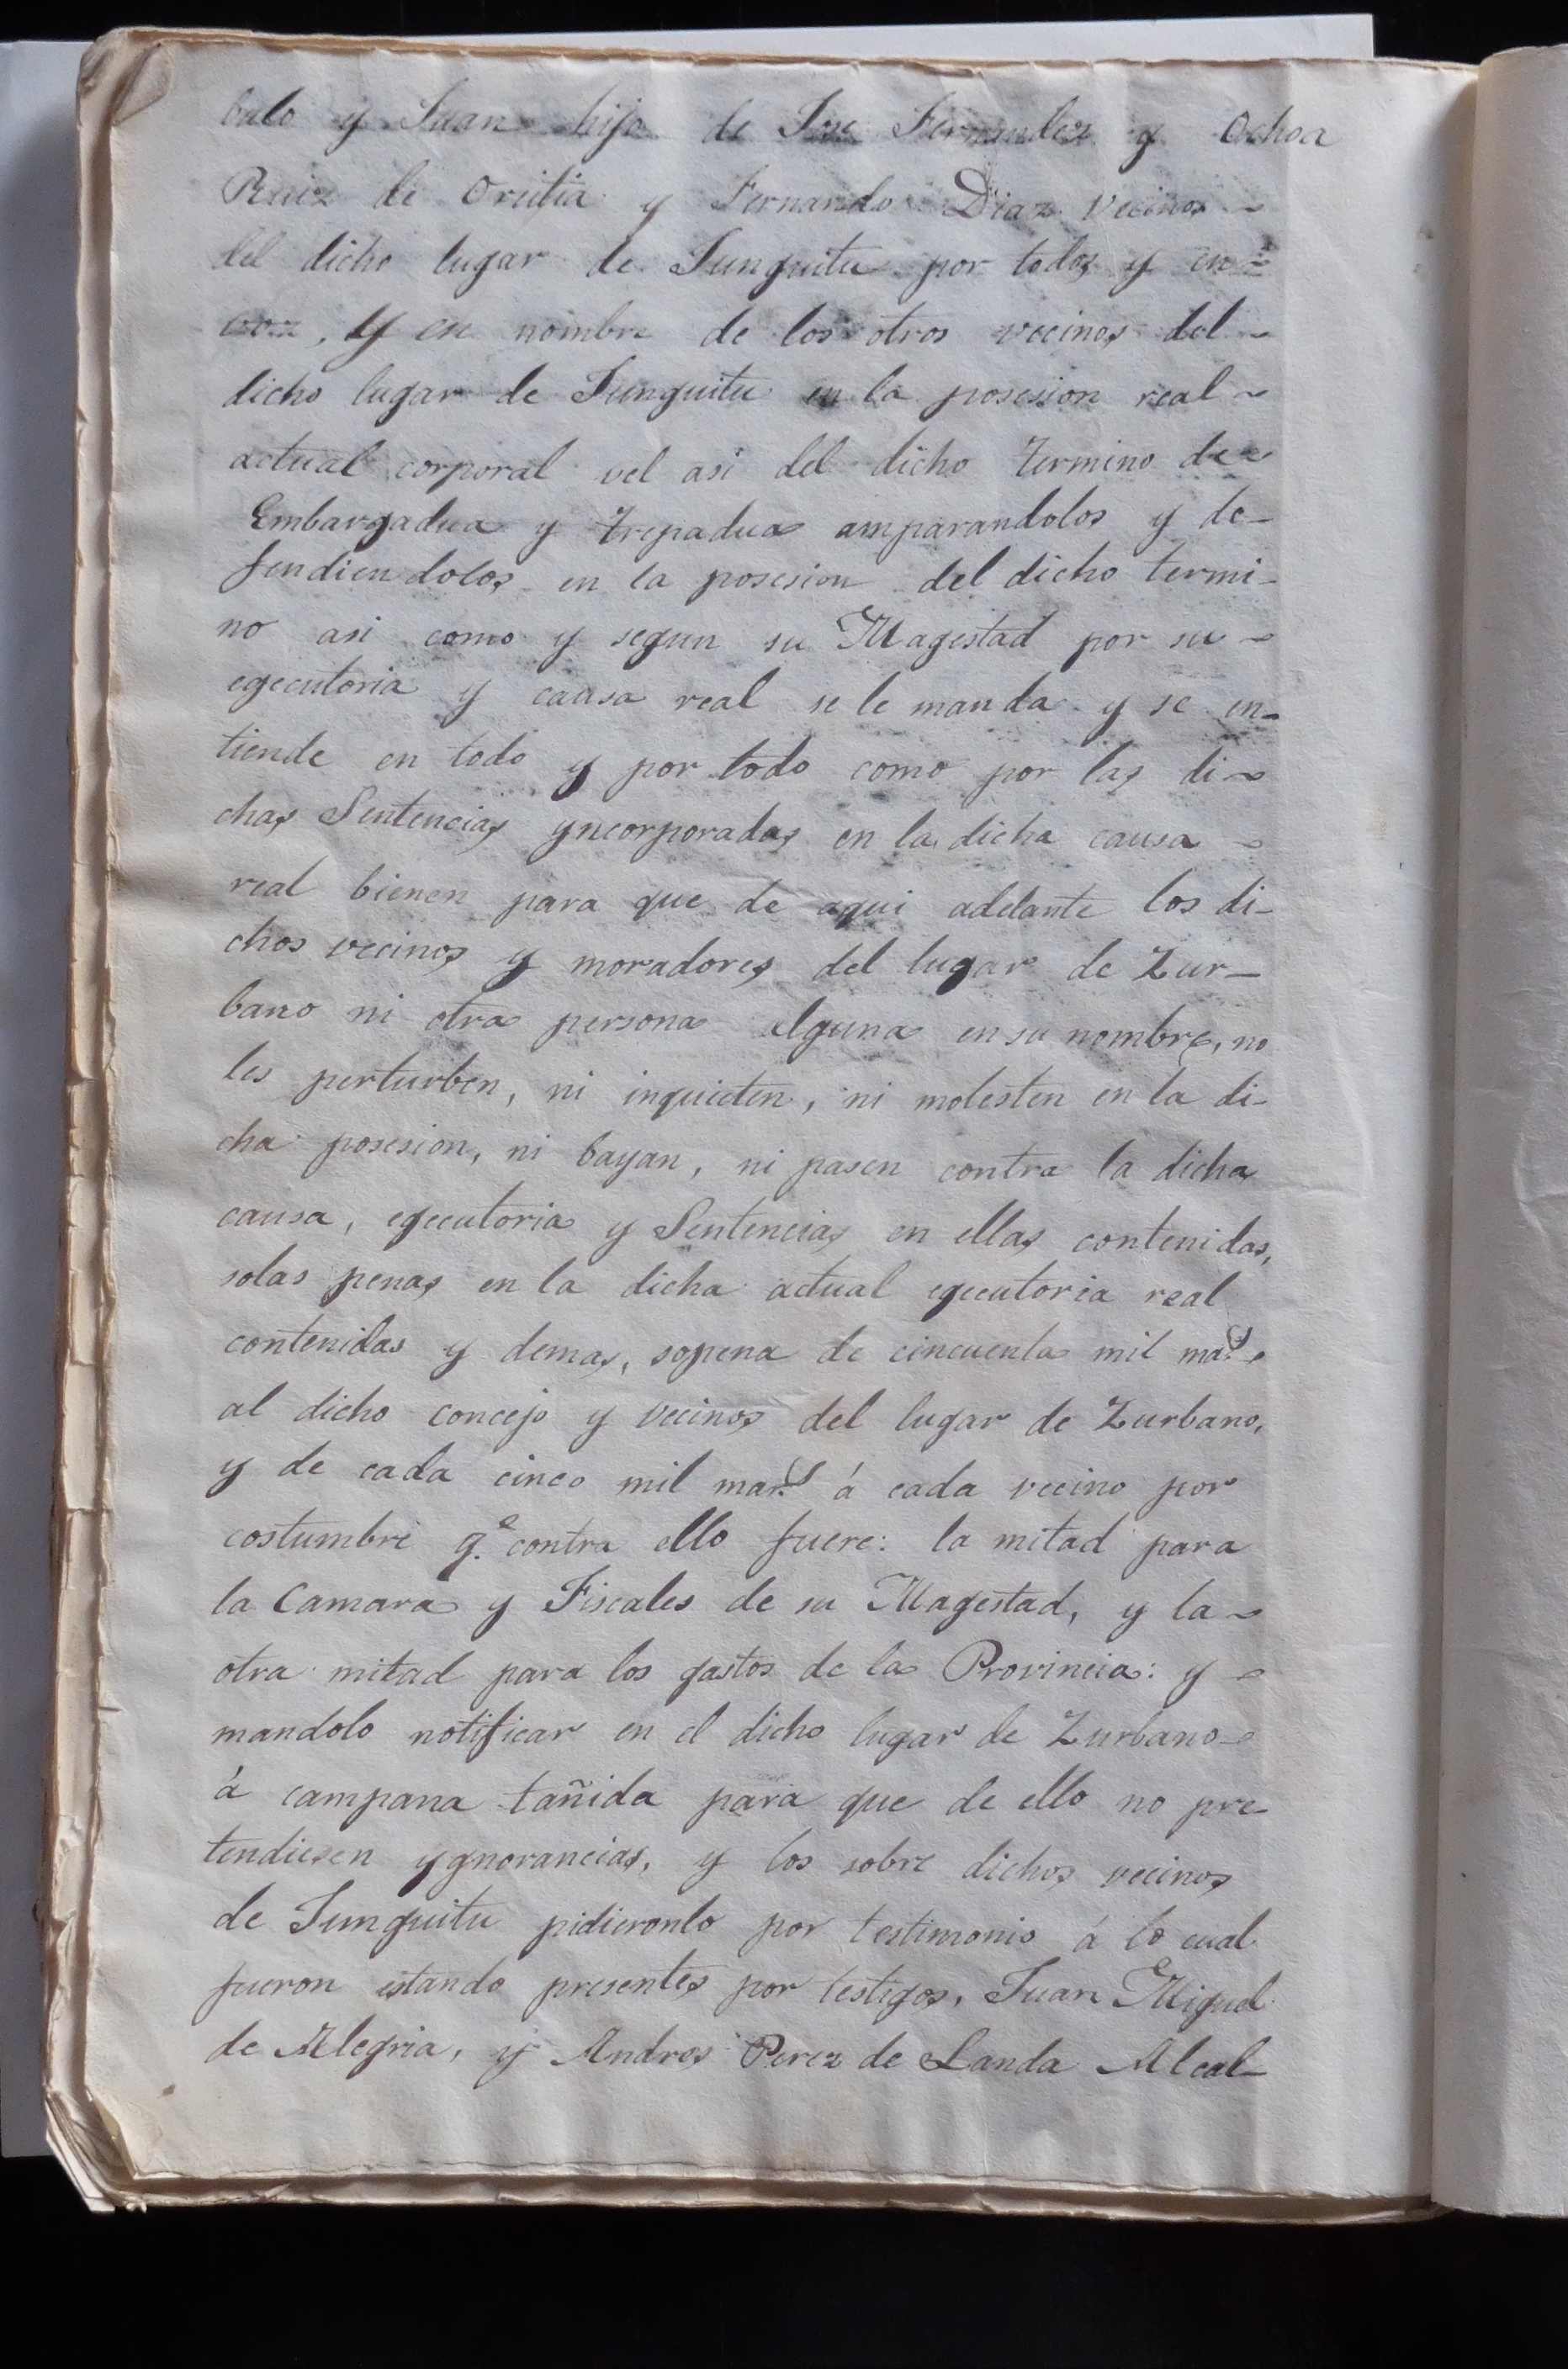 balo y Juan hijo de Jose Fernandez y Ochoa
Ruiz de Oritia y Fernando Diaz vecinos ~
del dicho lugar de Junguitu por todos y en =
voz, y en nombre de los otros vecinos del ~
dicho lugar de Junguitu en la posesion real ~
actual corporal vel asi del dicho termino de ~
Embargadua y trepadua amparandolos y de-
fendiendolos en la posesion del dicho termi-
no asi como y segun su Magestad por su -
egecutoria y causa real se le manda y se en-
tiende en todo y por todo como por las di ~
chas Sentencias yncorporadas en la dicha causa ~
real bienen para que de aqui adelante los di-
chos vecinos y moradores del lugar de Zur-
bano ni otra persona alguna en su nombre, no
les perturben, ni inquieten, ni molesten en la di-
cha posesion, ni bayan, ni pasen contra la dicha
causa, egecutoria y Sentencias en ellas contenidas,
solas penas en la dicha actual egecutoria real
contenidas y demas, sopena de cincuenta mil mas. ~
al dicho concejo y vecinos del lugar de Zurbano,
y de cada cinco mil mar.s á cada vecino por
costumbre q.e contra ello fuere: la mitad para
la Camara y Fiscales de su Magestad, y la ~
otra mitad para los gastos de la Provincia: y ~
mandolo notificar en el dicho lugar de Zurbano ~
á campana tañida para que de ello no pre-
tendiesen ygnorancias, y los sobre dichos vecinos
de Junguitu pidieronlo por testimonio á lo cual
fueron estando presentes por testigos, Juan Miguel
de Alegria, y Andres Perez de Landa Alcal-